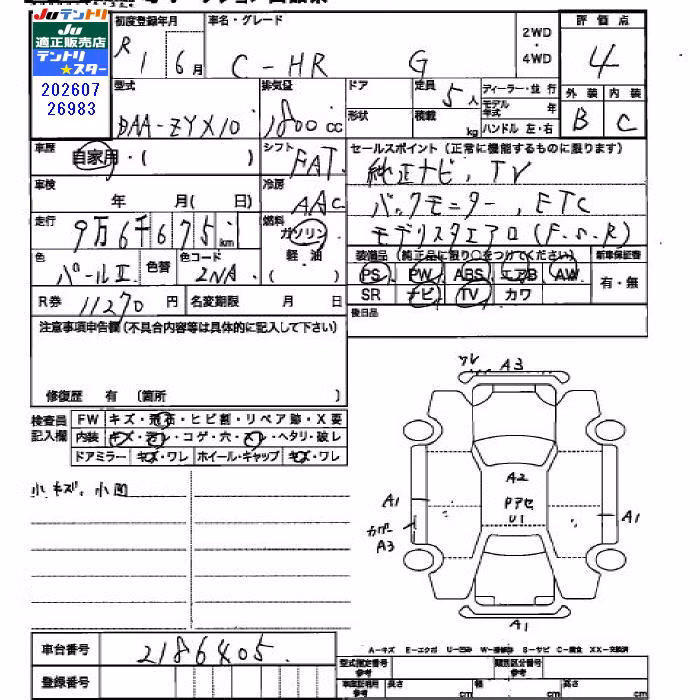 JUテントリ
JU
適正販売店
テントリ
★スター
202607
26983
初度登録年月
R1 6月
車名・グレード
C-HR G
2WD
・
4WD
評価点
4
外装 内装
B C
型式
DAA-ZYX10
排気量
1800cc
ドア
形状
定員
5人
積載
kg
ディーラー・並行
モデル年式 年
ハンドル 左・右
車歴
自家用・( )
シフト
FAT
セールスポイント(正常に機能するものに限ります)
純正ナビ, TV
バックモニター, ETC
モデリスタエアロ(F.S.R)
車検
年 月( 日)
冷房
AAC
走行
9万6千675km
燃料
ガソリン
軽・油
( )
色
パールII
色替
色コード
2NA
装備品(純正品に限り○をつけてください)
PS PW ABS エアB AW
SR ナビ TV カワ
新車保証書
有・無
R券
11270円
名変期限 月 日
後日品
注意事項申告欄(不具合内容等は具体的に記入して下さい)
修復歴 有 〔箇所 〕
検査員
記入欄
FW キズ・飛石・ヒビ割・リペア跡・X要
内装 キズ・汚レ・コゲ・穴・スレ・ヘタリ・破レ
ドアミラー キズ・ワレ ホイール・キャップ キズ・ワレ
小キズ、小凹
ワレ
A3
A2
Pアセ
U1
A1
カバー
A3
A1
A1
A-キズ E-エクボ U-凹み W-補修跡 S-サビ C-腐食 XX-交換済
車台番号
2186405
登録番号
型式指定番号
参考
類別区分番号
参考
車庫証明用
参考
長さ cm 幅 cm 高さ cm